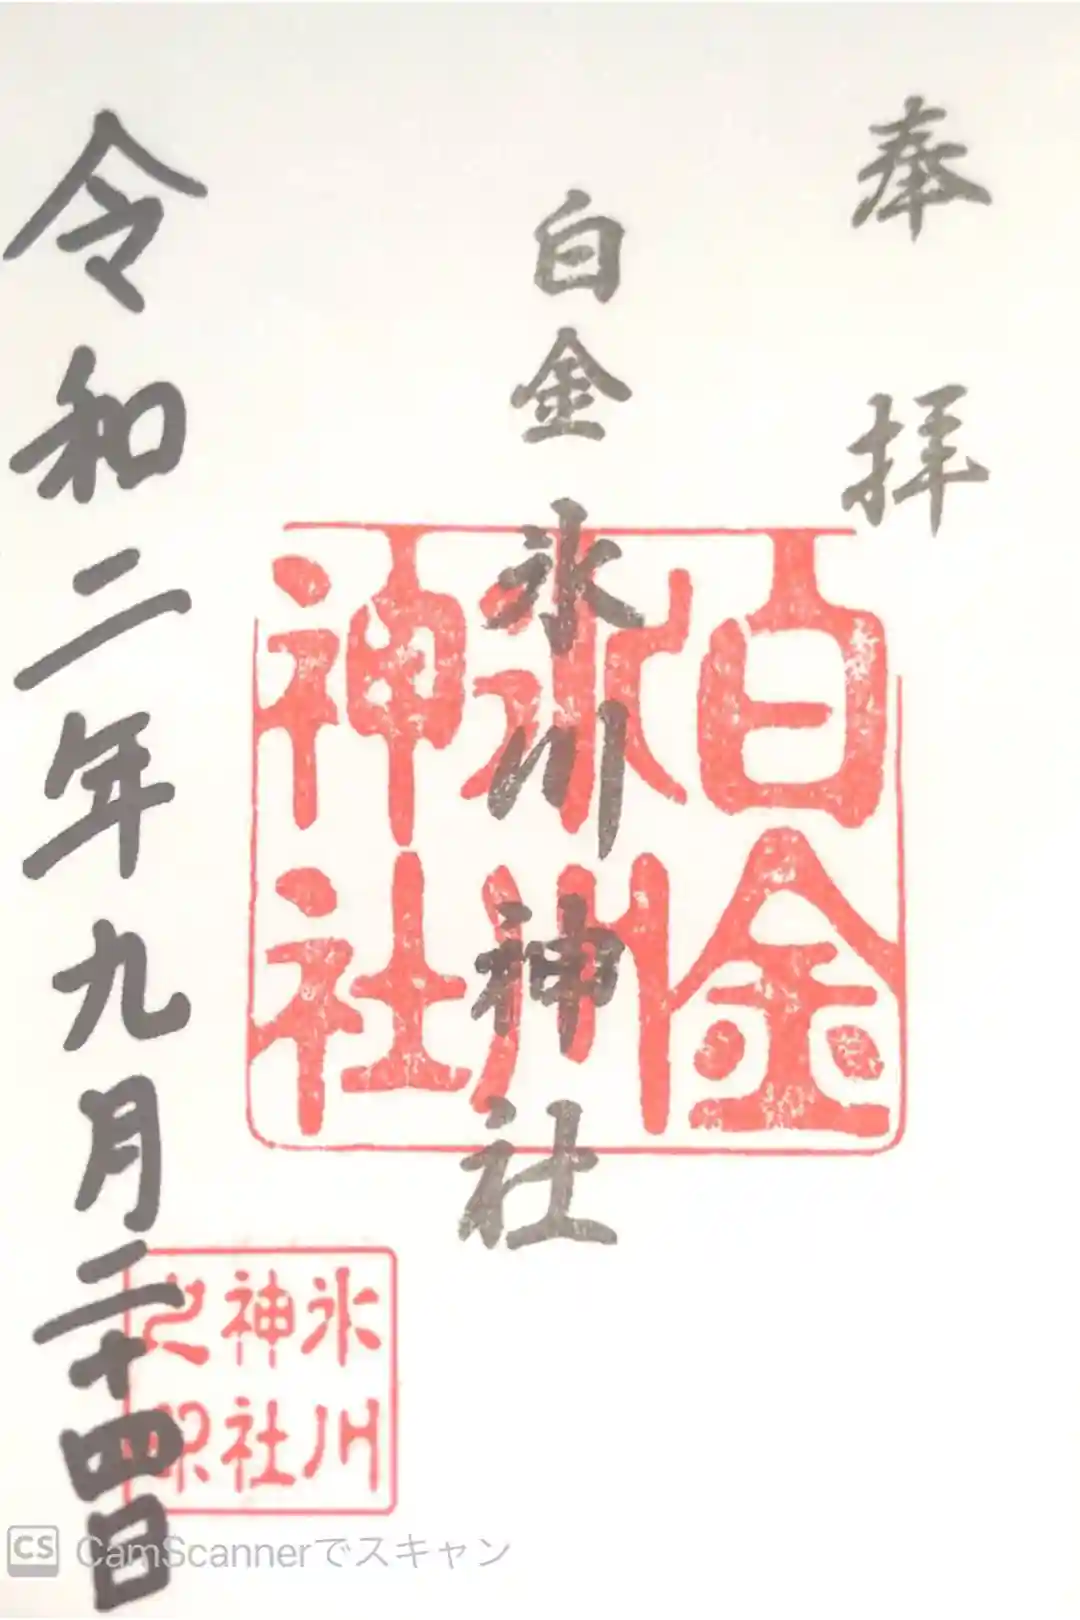 奉拝
白金氷川神社
白金
氷川
神社
令和二年九月二十四日
氷川
神社
之印
CS CamScannerでスキャン